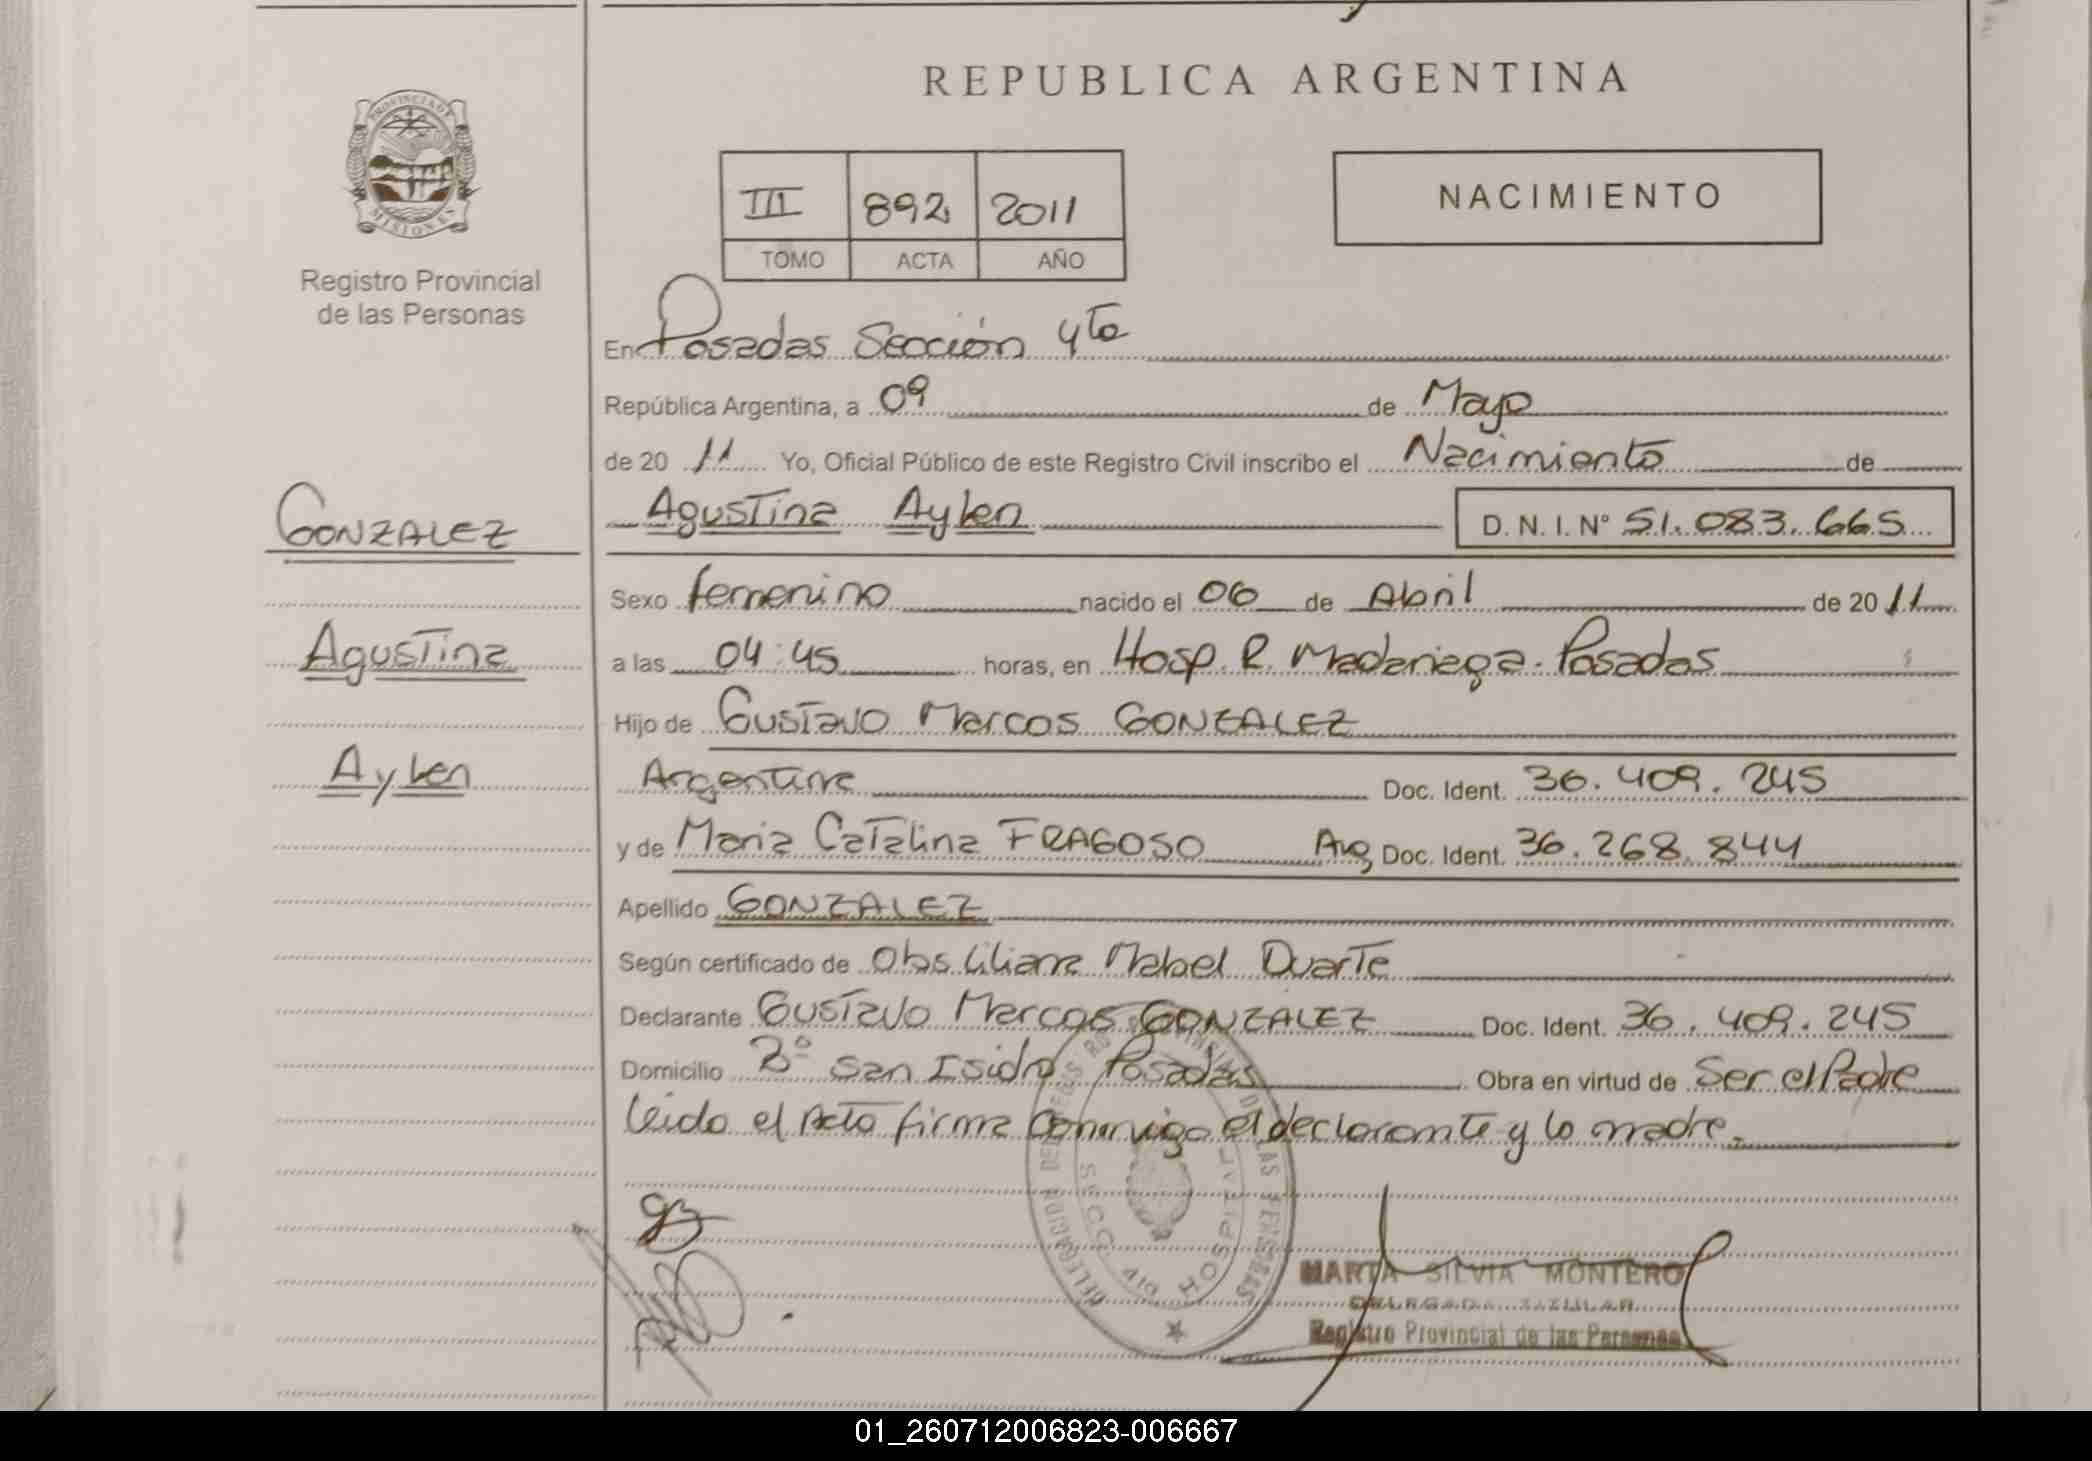 REPUBLICA ARGENTINA
PROVINCIA DE MISIONES
Registro Provincial
de las Personas
III 892 2011
TOMO ACTA AÑO
NACIMIENTO
En Posadas Sección 4ta
República Argentina, a 09 de Mayo
de 20 11 Yo, Oficial Público de este Registro Civil inscribo el Nacimiento de
Agustina Aylen D. N. I. N° 51.083.665
GONZALEZ
Agustina
Aylen
Sexo femenino nacido el 06 de Abril de 20 11
a las 04:45 horas, en Hosp. R. Madariaga. Posadas
Hijo de Gustavo Marcos GONZALEZ
Argentina Doc. Ident. 36.409.245
y de Maria Catalina FRAGOSO Arg Doc. Ident. 36.268.844
Apellido GONZALEZ
Según certificado de Obs. Liliana Mabel Duarte
Declarante Gustavo Marcos GONZALEZ Doc. Ident. 36.409.245
Domicilio B° San Isidro Posadas Obra en virtud de Ser el Padre
Leido el Acta firma conmigo el declarante y la madre.
SECC 4ta HOSPITAL
MARTA SILVIA MONTERO
DELEGADA TITULAR
Registro Provincial de las Personas
01_260712006823-006667